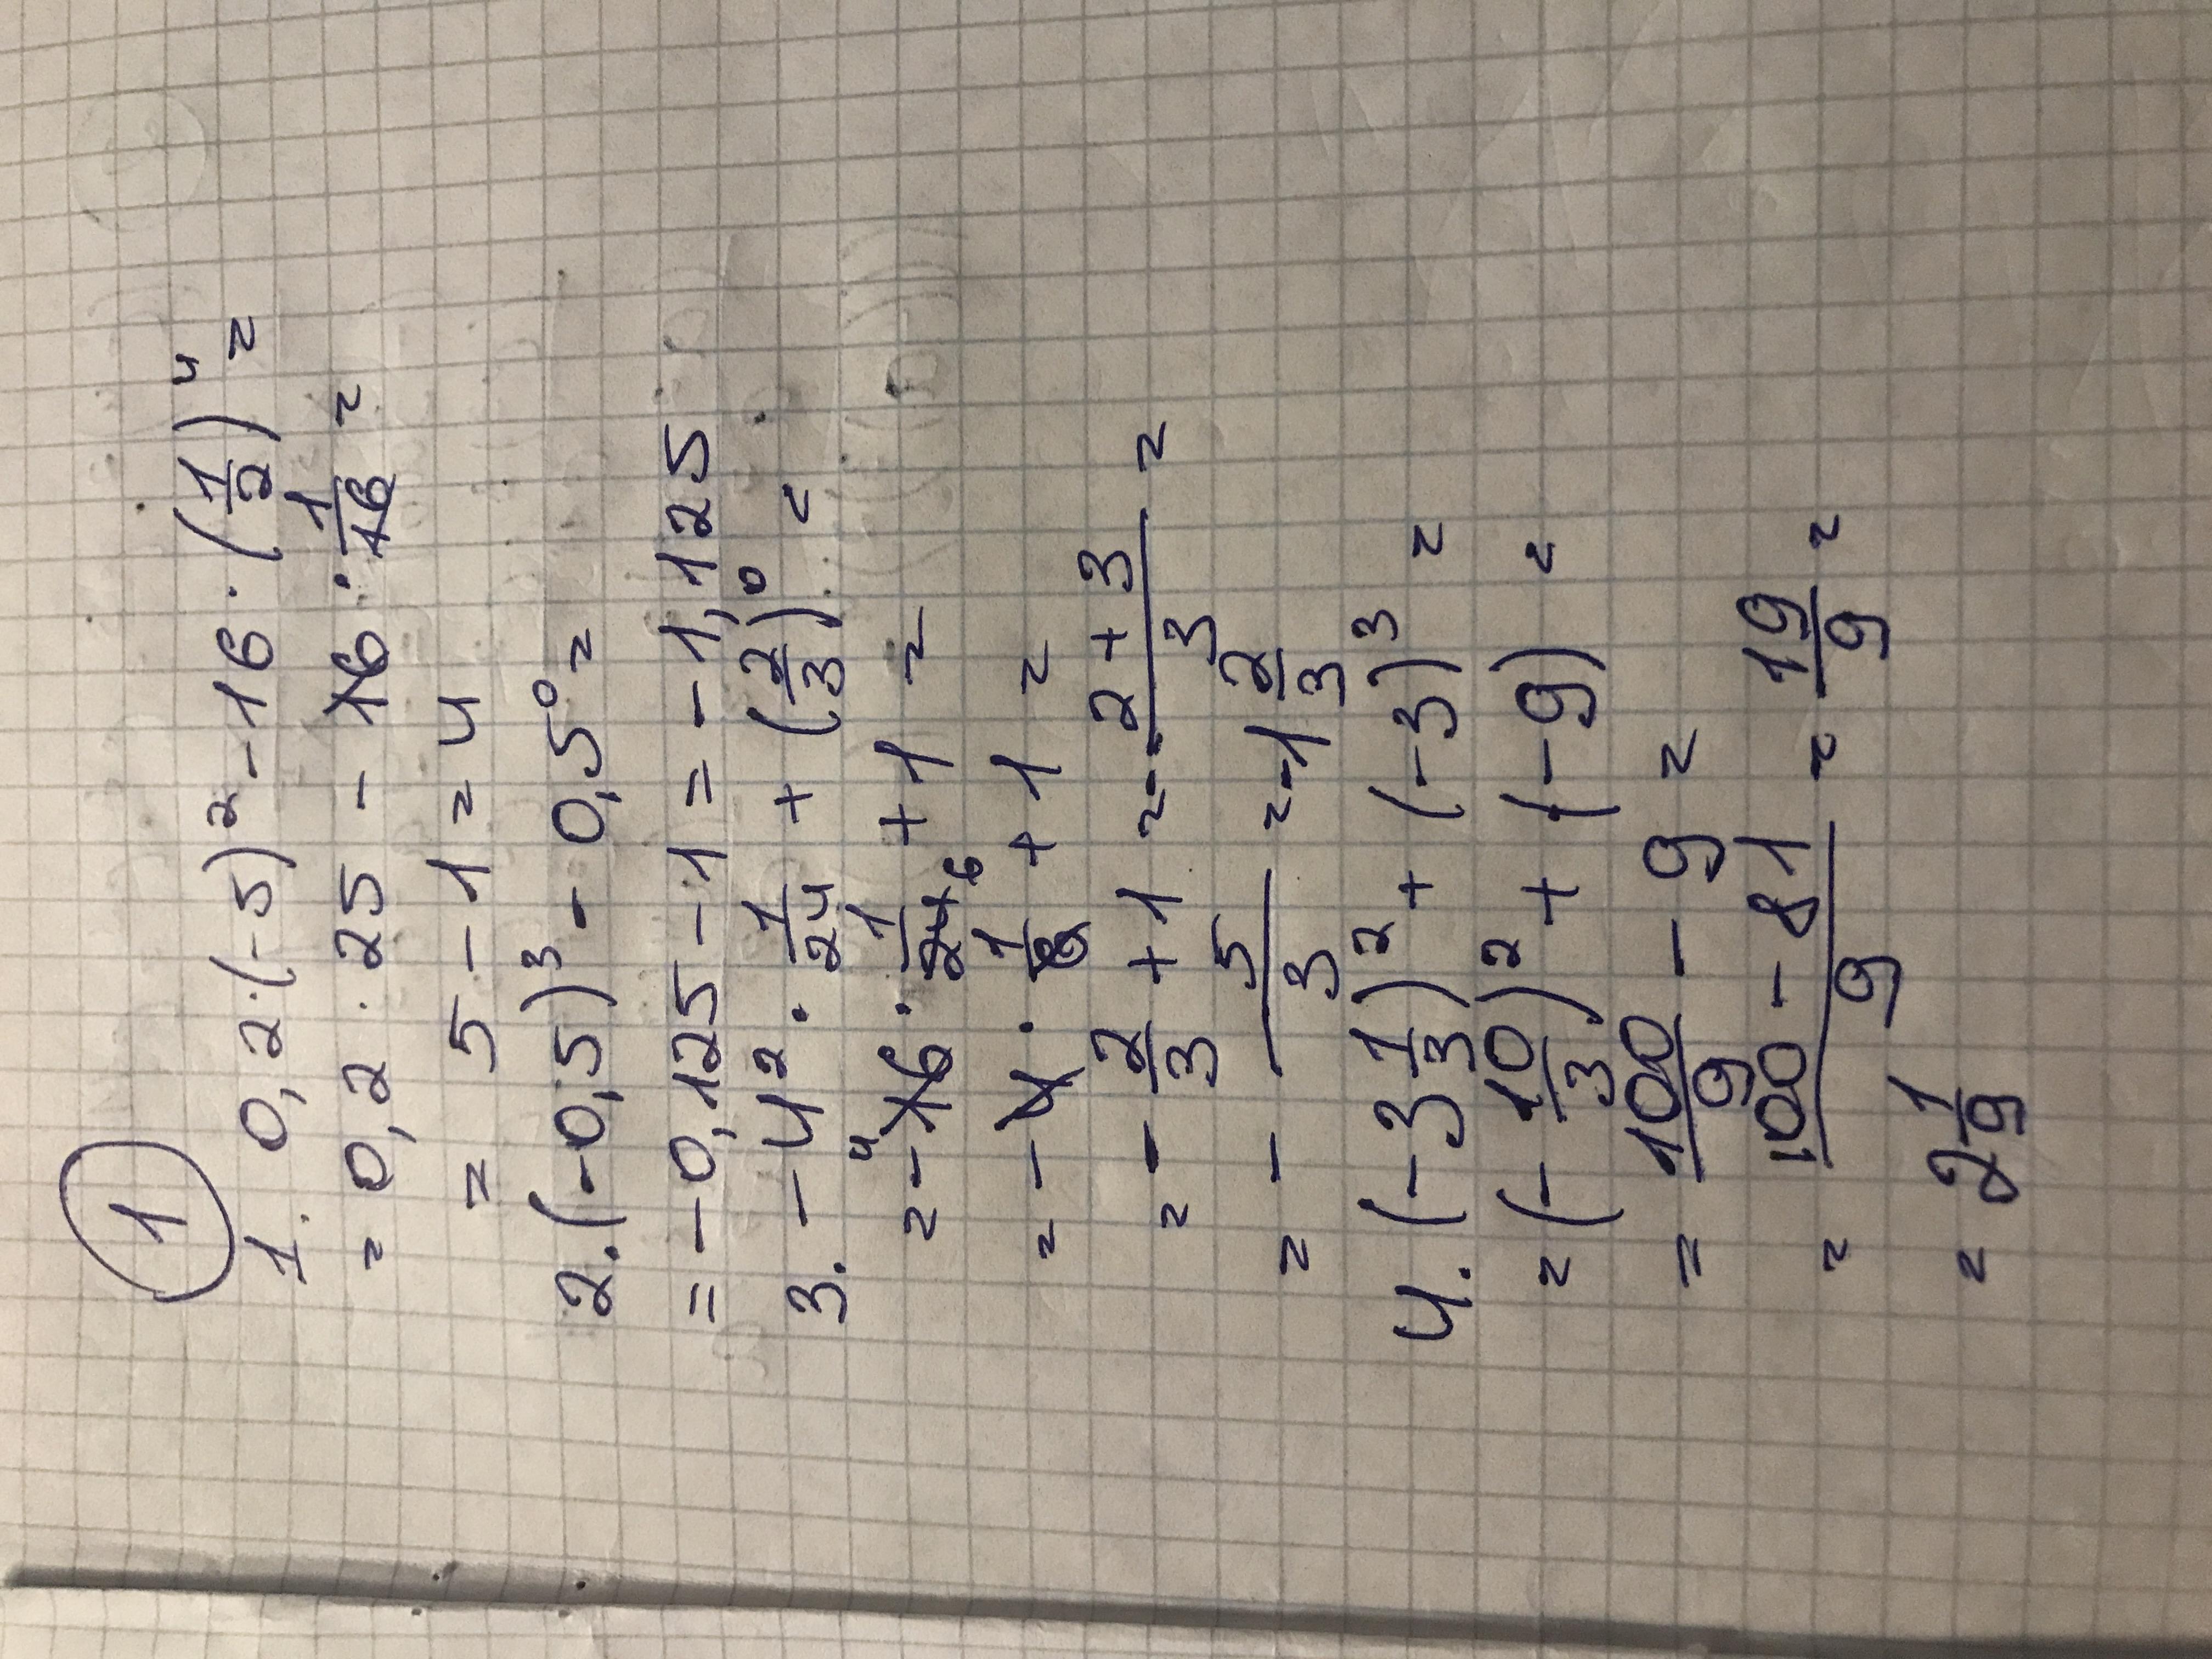 1
1. 0,2·(-5)² - 16·(1/2)⁴ =
= 0,2 · 25 - 16 · 1/16 =
= 5 - 1 = 4
2. (-0,5)³ - 0,5⁰ =
= -0,125 - 1 = -1,125
3. -4² · 1/24 + (2/3)⁰ =
= - 16 4 · 1/24 6 + 1 =
= - 4 · 1/6 + 1 =
= - 2/3 + 1 = - 2+3/3 =
= - 5/3 = -1 2/3
4. (-3 1/3)² + (-3)³ =
= (- 10/3)² + (-9) =
= 100/9 - 9 =
= 100 - 81/9 = 19/9 =
= 2 1/9